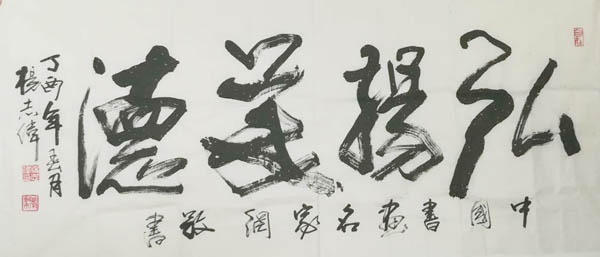 弘揚美德
中國書畫名家網敬書
丁酉年春月
楊志偉